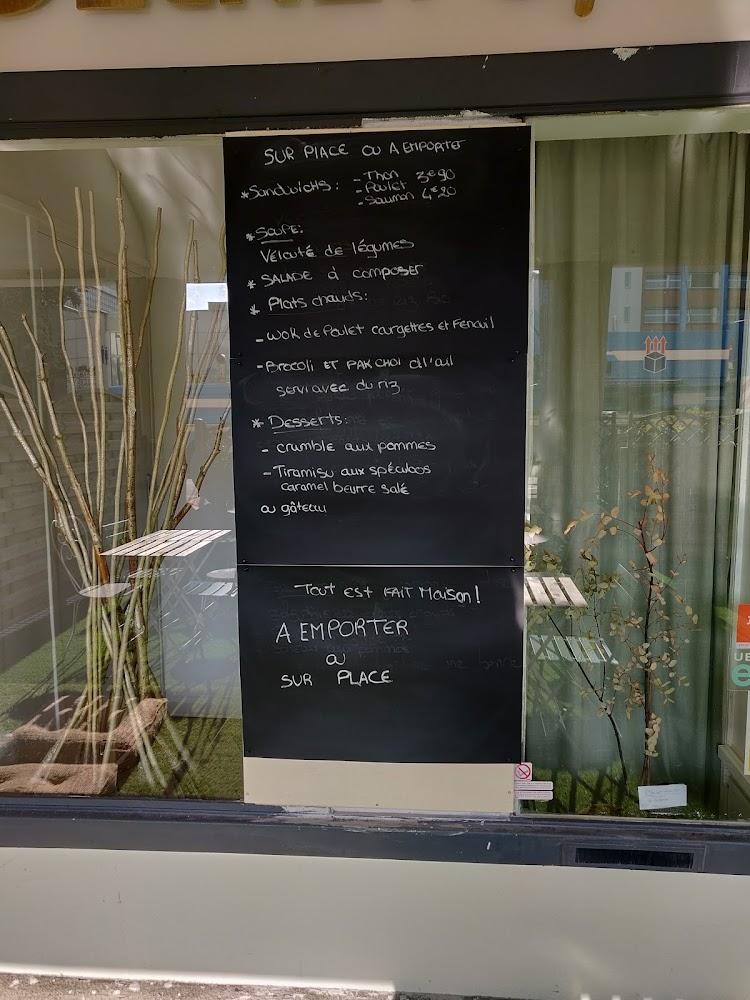 SUR PlACE OU A EMPORTER
*Sandwichs: - Thon 3€90
- Poulet
- Saumon 4€20
* SOUPE:
Velouté de légumes
* SALADE à composer
* Plats chauds:
- WOK de Poulet courgettes et Fenouil
- Brocoli ET PAK CHOI à l'ail
servi avec du riz
* Desserts:
- crumble aux pommes
- Tiramisu aux spéculos
caramel beurre salé
ou gâteau
Tout EST FAIT Maison!
A EMPORTER
ou
SUR PLACE